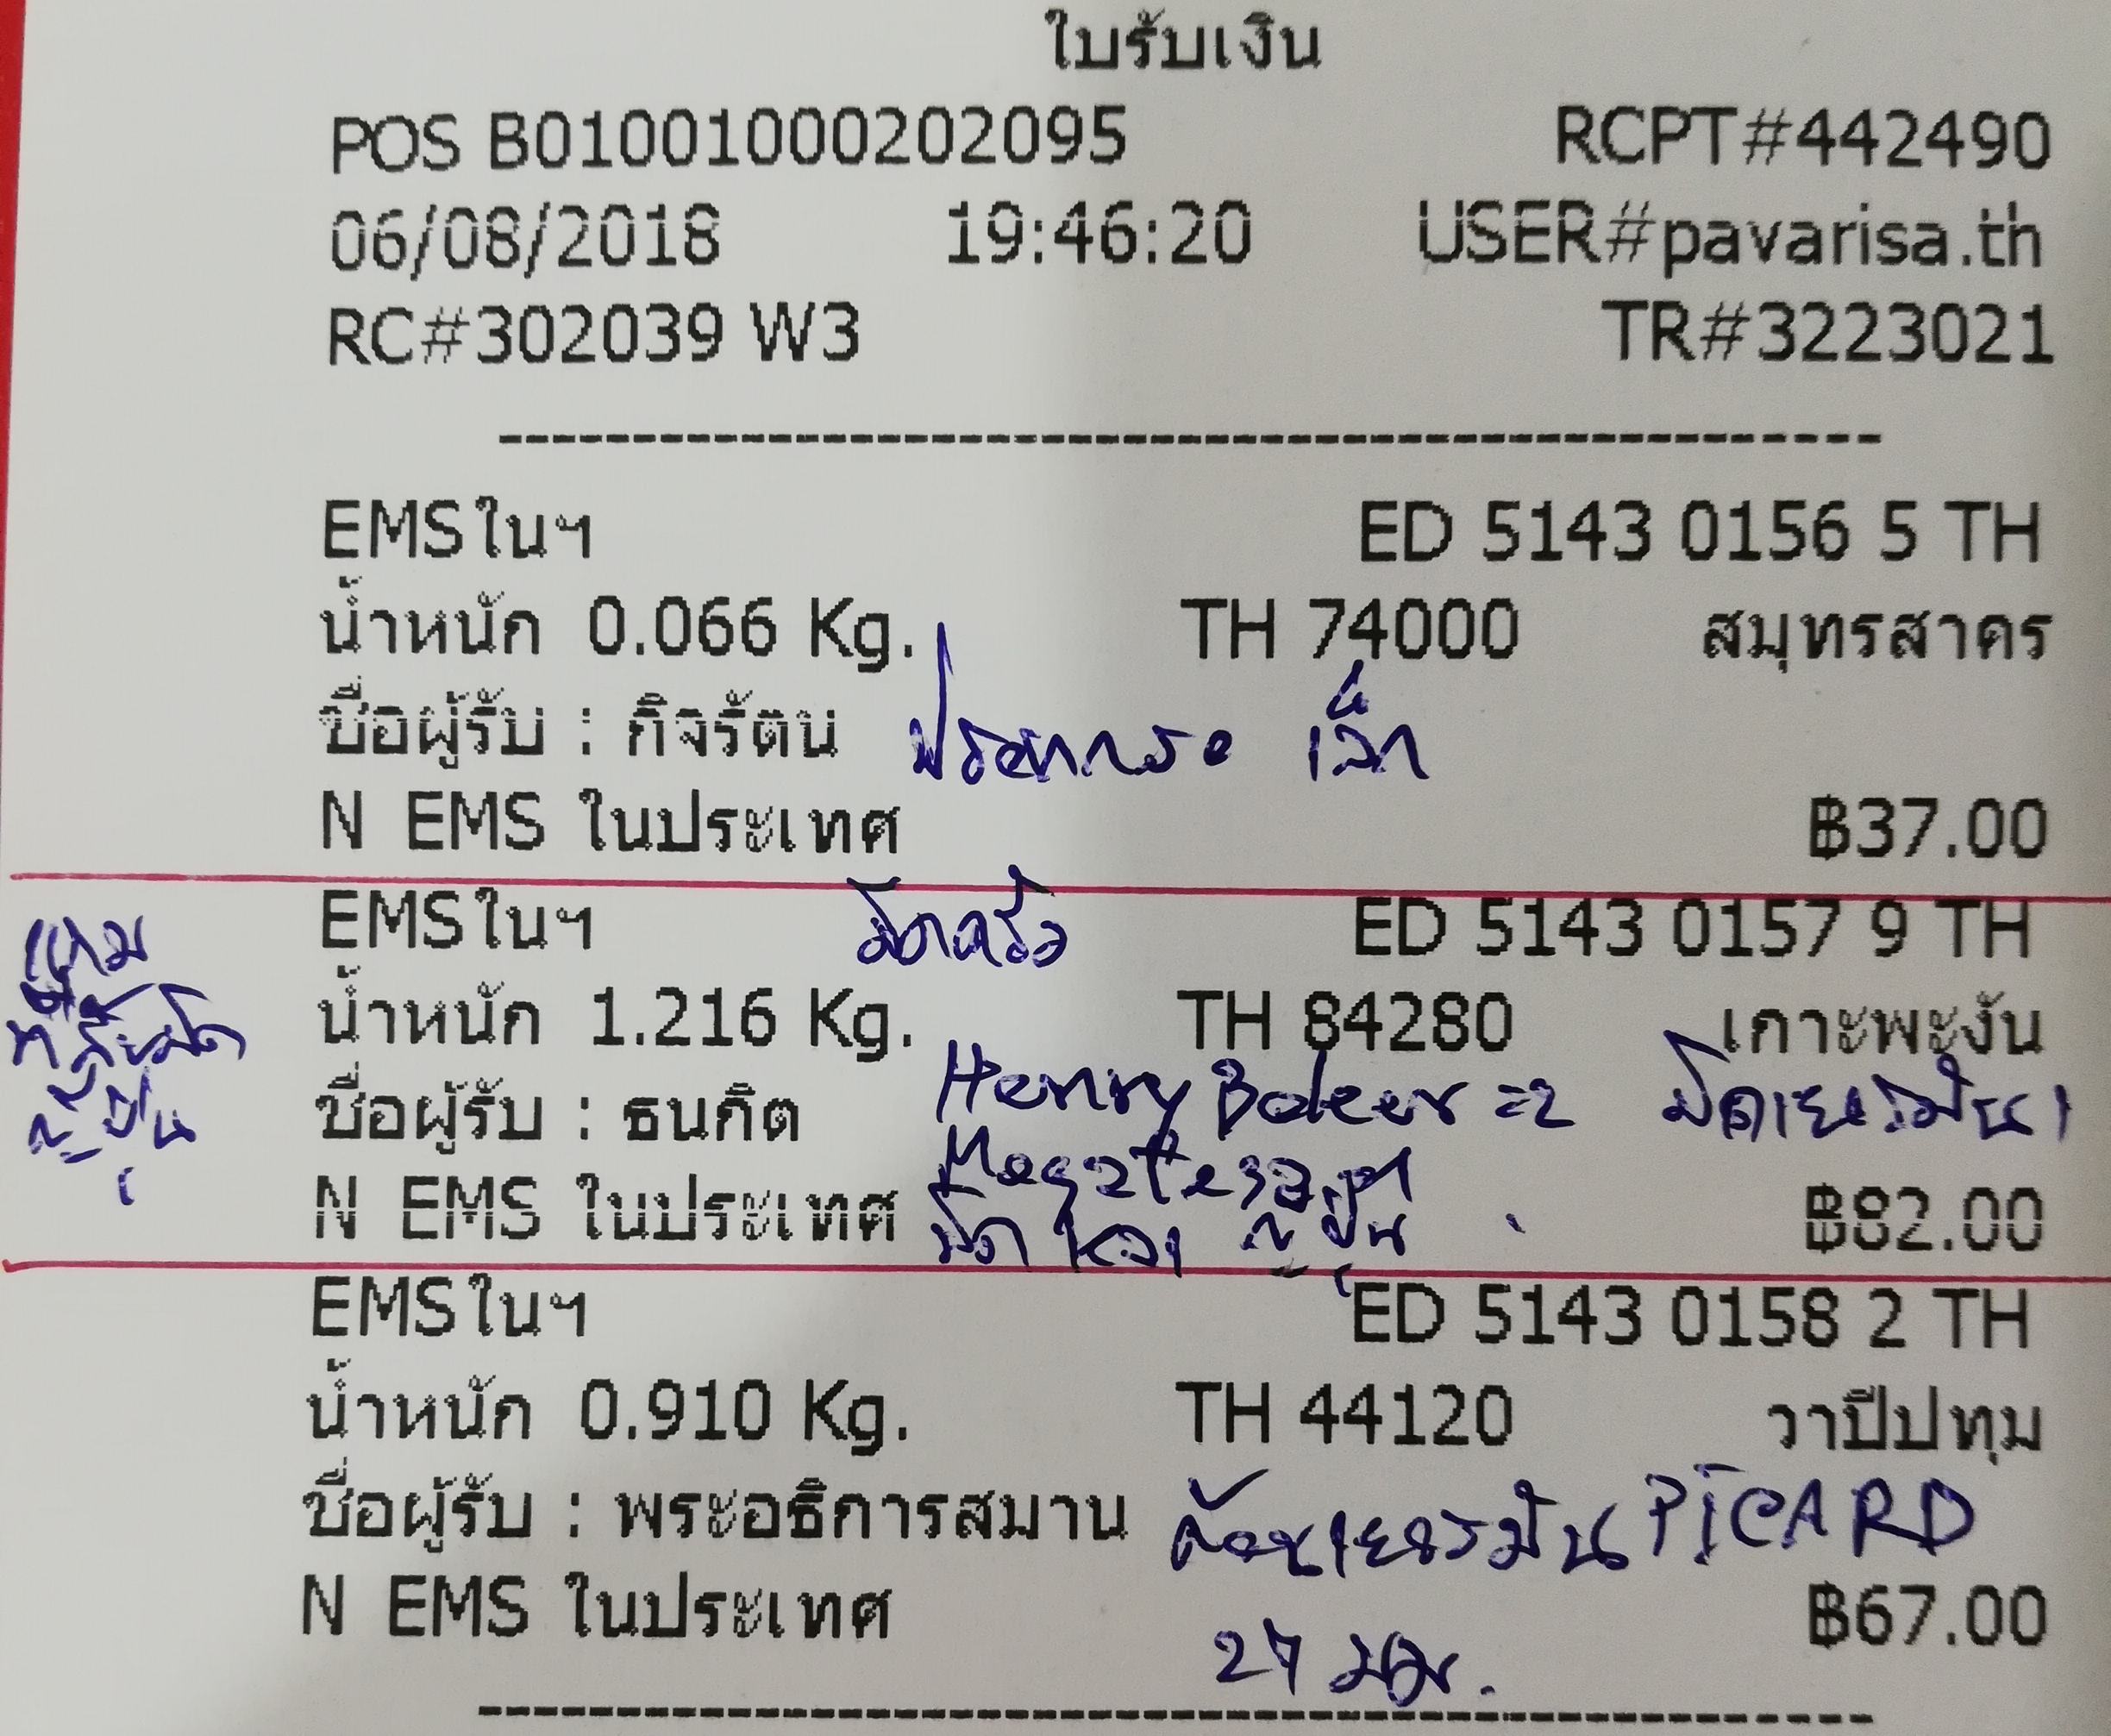 ใบรับเงิน
POS B01001000202095 RCPT#442490
06/08/2018 19:46:20 USER#pavarisa.th
RC#302039 W3 TR#3223021
EMSในฯ ED 5143 0156 5 TH
น้ำหนัก 0.066 Kg. TH 74000 สมุทรสาคร
ชื่อผู้รับ : กิจรัตน เล็ก
N EMS ในประเทศ ฿37.00
EMSในฯ มีดครัว ED 5143 0157 9 TH
น้ำหนัก 1.216 Kg. TH 84280 เกาะพะงัน
แถม
ที่ลับมีด
ญี่ปุ่น
ชื่อผู้รับ : ธนกิต Henry Boker =2 มีดเยอรมัน 1
N EMS ในประเทศ ฿82.00
มีด ญี่ปุ่น
EMSในฯ ED 5143 0158 2 TH
น้ำหนัก 0.910 Kg. TH 44120 วาปีปทุม
ชื่อผู้รับ : พระอธิการสมาน ค้อนเยอรมัน PICARD
N EMS ในประเทศ ฿67.00
27 มม.